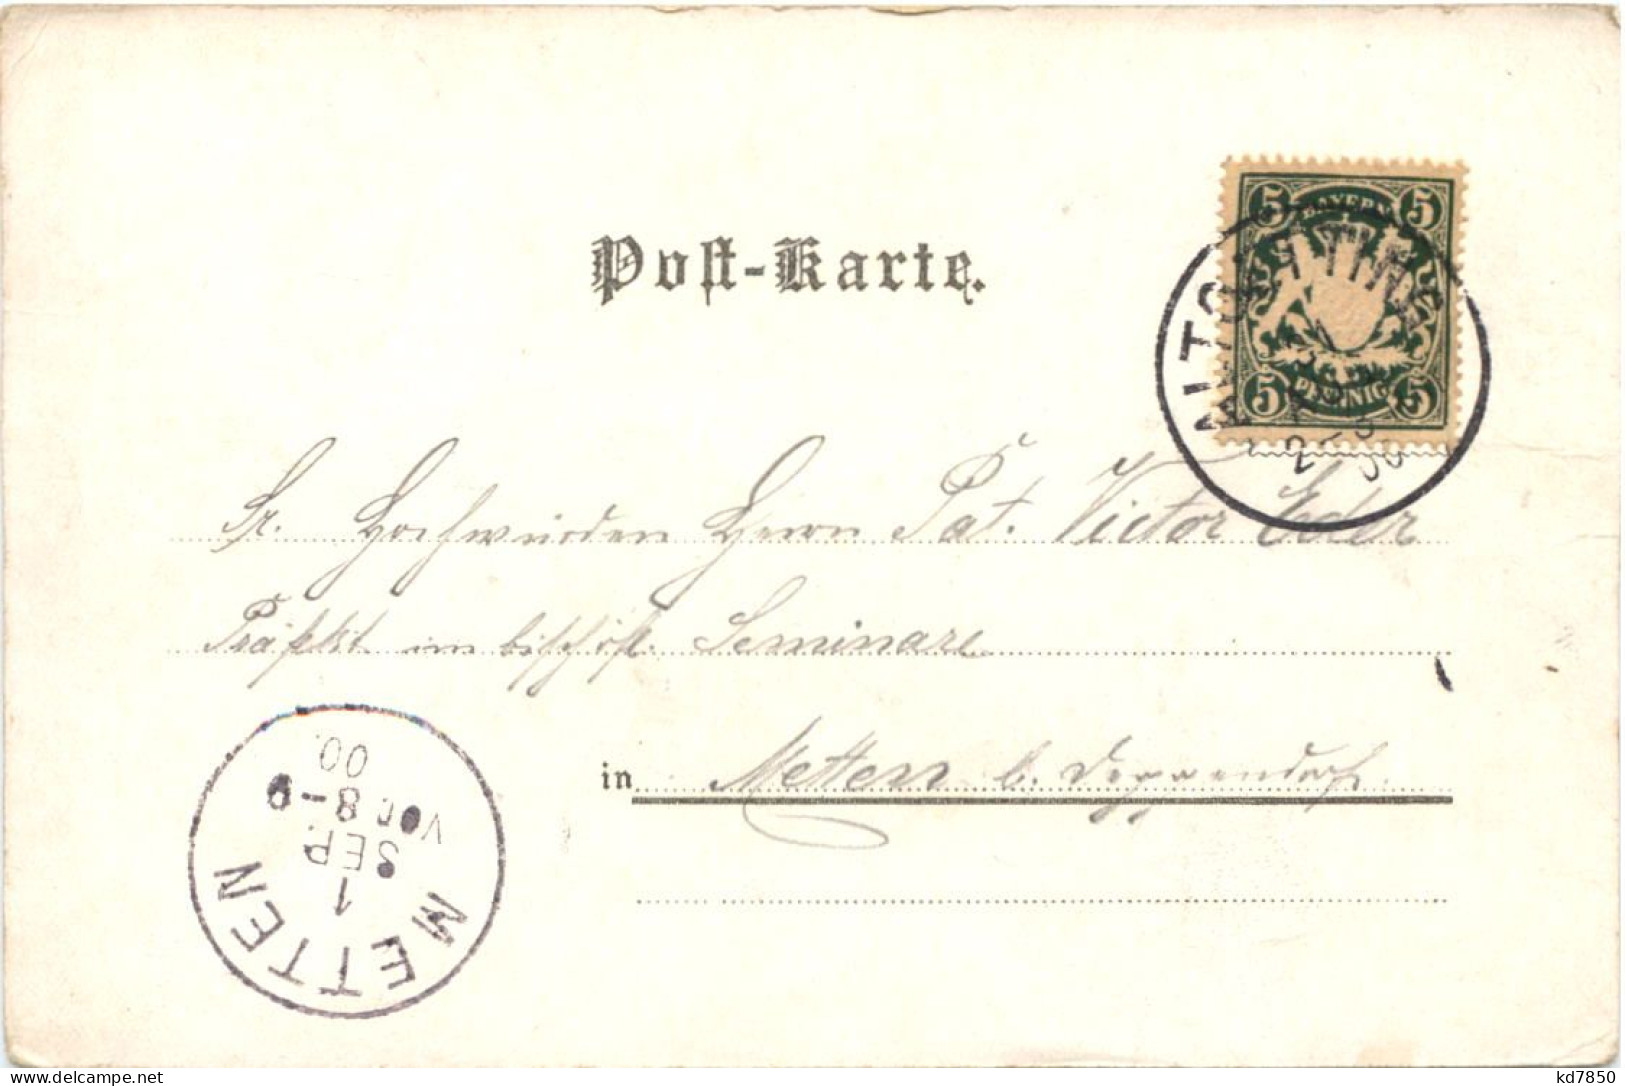 Post-Karte.
5 BAYERN 5
5 PFENNIG 5
ALTÖTTING
Sr. Hochwürden Herrn Pat. Victor Eder
Präfekt im bischöfl. Seminare
in Metten b. Deggendorf
METTEN
1
SEP.
VOR 8-9
00.
www.delcampe.net
kd7850